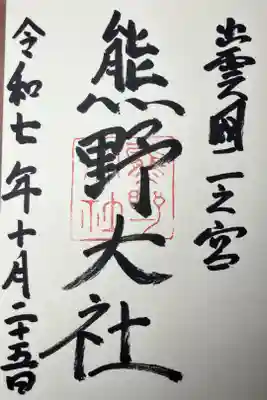 出雲國一之宮
熊野大社
令和七年十月二十五日